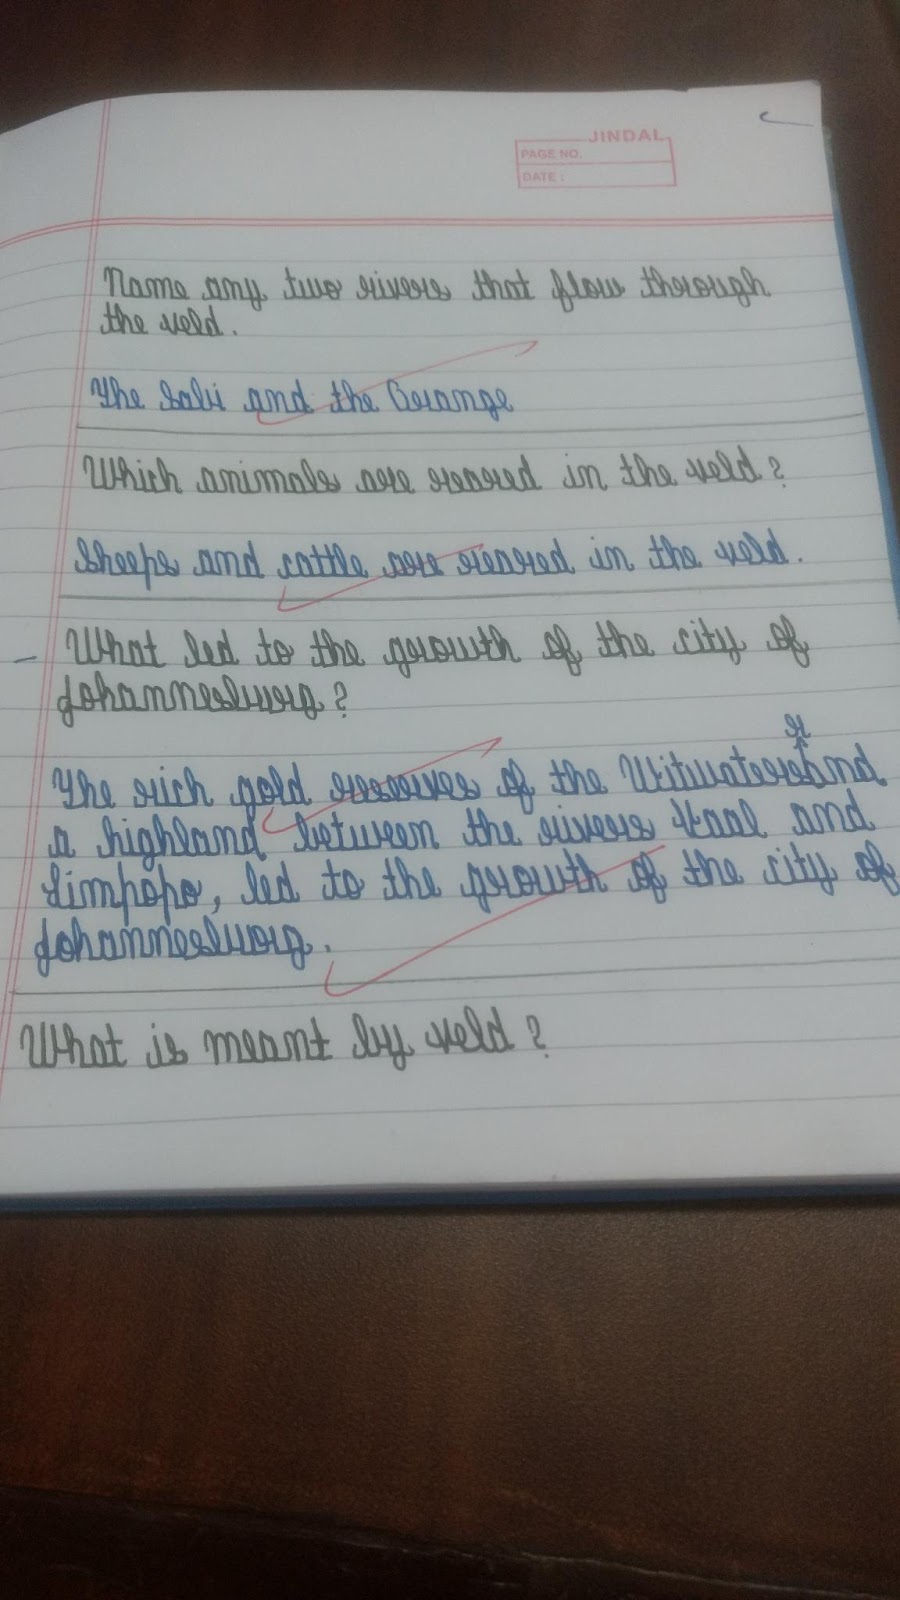 JINDAL
PAGE NO.
DATE :
Name any two rivers that flow through
the veld.
The Sabi and the Orange
Which animals are reared in the veld ?
Sheeps and cattle are reared in the veld.
What led to the growth of the city of
Johannesburg ?
The rich gold reserves of the Witwatersrand
a highland between the rivers Vaal and
Limpopo, led to the growth of the city of
Johannesburg.
What is meant by veld ?